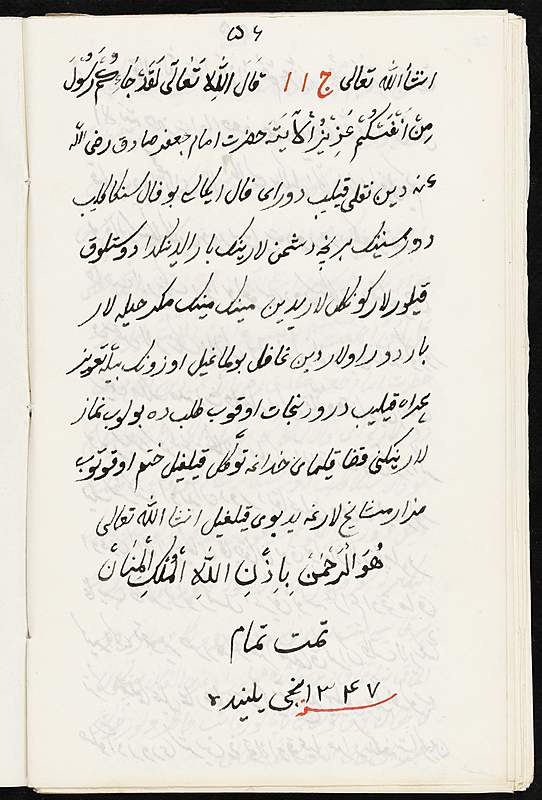 ٥٦
انشأالله تعالی ج ١١ قَالَ اللهُ تَعَالَی لَقَدْ جَاءَكُمْ رَسُولٌ
مِنْ اَنْفُسِكُمْ عَزِيْزٌ اَلآيَة حضرت امام جعفر صادق رضی الله
عنه دین نقلی قیلیب دورای فال ایکالی بو فال سنکا کلیب
دور سنینک هر نچه دشمن لارینک بار الدینکدا دوستلوق
قیلورلار کونکل لاریدین مینک مینک مکر حیله لار
بار دور اولاردین غافل بولماغیل اوزونک بیله تعویذ
همراه قیلیب درود نجات اوقوب طلب ده بولوب نماز
لارینکنی قضا قیلمای خداغه توکل قیلغیل ختم اوقوتوب
مزار مشایخ لارغه یدبوی قیلغیل انشا الله تعالی
هُوَ الرَّحْمٰنُ بِاِذْنِ اللهِ الْمَلِكِ الْمَنَّانْ
تمت تمام
١٣٤٧ نجی یلینده